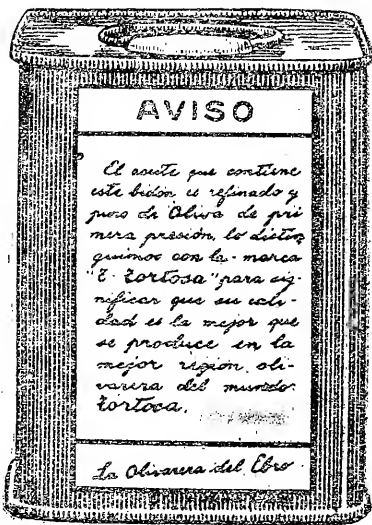 AVISO
El aceite que contiene
este bidón es refinado y
puro de Oliva de pri
mera presión, lo distin
guimos con la marca
"E-Tortosa" para sig-
nificar que su cali-
dad es la mejor que
se produce en la
mejor región oli-
varera del mundo:
Tortosa.
La Olivarera del Ebro